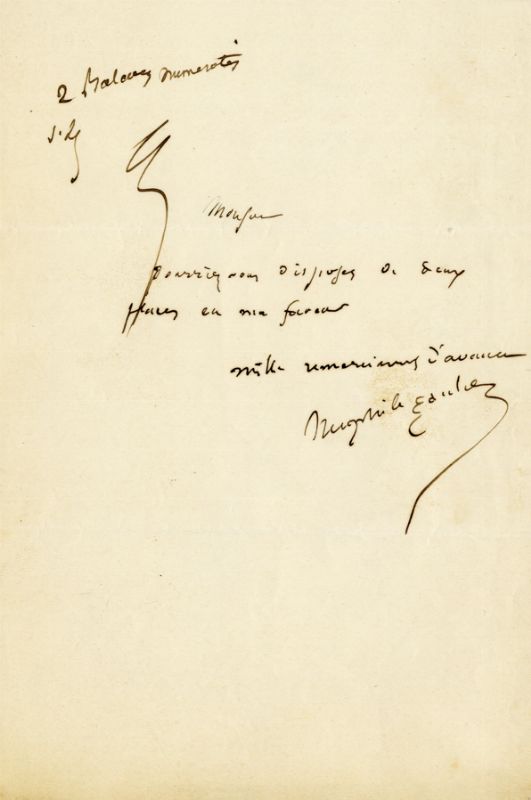 2 Balcons numerotés
Monsieur
pourriez vous disposer de deux
places en ma faveur
mille remerciemens d'avance
Theophile Gautier